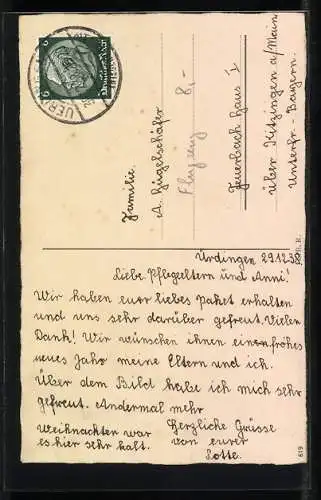 Familie.
A. Hügelschäfer
Flugzeug 8,-
Feuerbach Haus 1
über Kitzingen a/Main
Unterfr. Bayern.
Ürdingen 29.12.38
Liebe Pflegeeltern und Anni!
Wir haben euer liebes Paket erhalten
und uns sehr darüber gefreut. Vielen
Dank! Wir wünschen ihnen ein frohes
neues Jahr meine Eltern und ich.
Über dem Bild habe ich mich sehr
gefreut. Andermal mehr
Weihnachten war
es hier sehr kalt.
Herzliche Grüsse
von eurer
Lotte.
619
6
6
Deutsches Reich